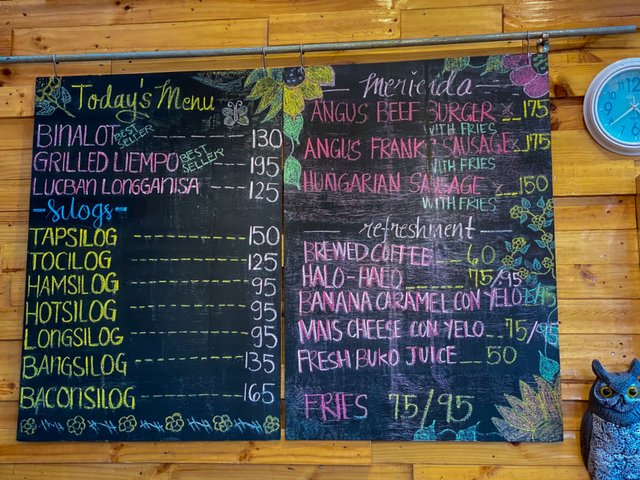 Today's Menu
BINALOT BEST SELLER 130
GRILLED LIEMPO BEST SELLER 195
LUCBAN LONGGANISA 125
Silogs
TAPSILOG 150
TOCILOG 125
HAMSILOG 95
HOTSILOG 95
LONGSILOG 95
BANGSILOG 135
BACONSILOG 165
Merienda
ANGUS BEEF BURGER 175
WITH FRIES
ANGUS FRANK SAUSAGE 175
WITH FRIES
HUNGARIAN SAUSAGE 150
WITH FRIES
refreshment
BREWED COFFEE 60
HALO-HALO 75/95
BANANA CARAMEL CON YELO
MAIS CHEESE CON YELO 75/95
FRESH BUKO JUICE 50
FRIES 75/95